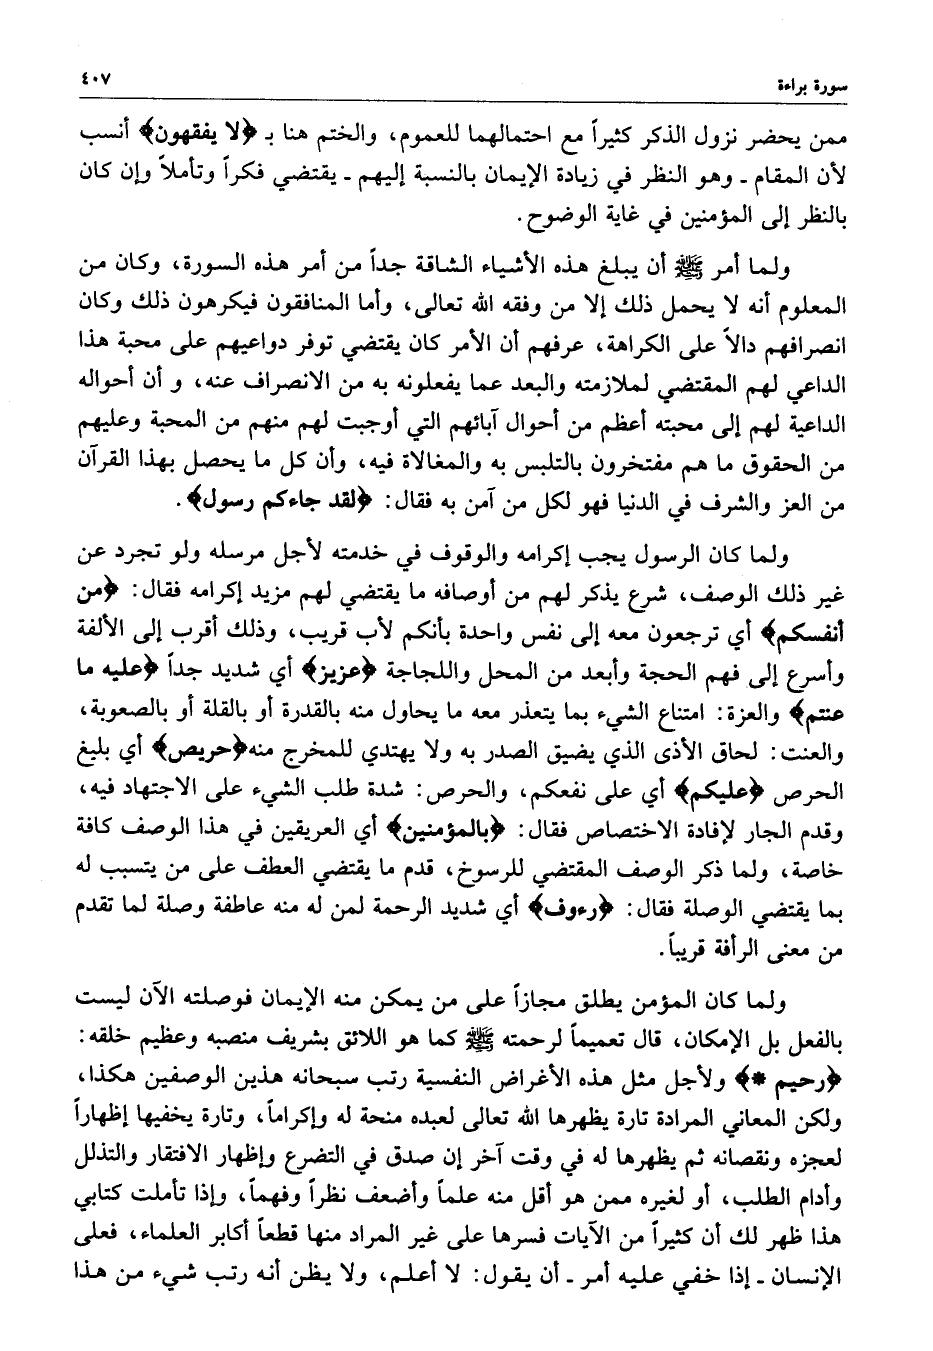 سورة براءة
٤٠٧
ممن يحضر نزول الذكر كثيراً مع احتمالهما للعموم، والختم هنا بـ ﴿لا يفقهون﴾ أنسب
لأن المقام ـ وهو النظر في زيادة الإيمان بالنسبة إليهم ـ يقتضي فكراً وتأملاً وإن كان
بالنظر إلى المؤمنين في غاية الوضوح.
ولما أمر ﷺ أن يبلغ هذه الأشياء الشاقة جداً من أمر هذه السورة، وكان من
المعلوم أنه لا يحمل ذلك إلا من وفقه الله تعالى، وأما المنافقون فيكرهون ذلك وكان
انصرافهم دالاً على الكراهة، عرفهم أن الأمر كان يقتضي توفر دواعيهم على محبة هذا
الداعي لهم المقتضي لملازمته والبعد عما يفعلونه به من الانصراف عنه، و أن أحواله
الداعية لهم إلى محبته أعظم من أحوال آبائهم التي أوجبت لهم منهم من المحبة وعليهم
من الحقوق ما هم مفتخرون بالتلبس به والمغالاة فيه، وأن كل ما يحصل بهذا القرآن
من العز والشرف في الدنيا فهو لكل من آمن به فقال: ﴿لقد جاءكم رسول﴾.
ولما كان الرسول يجب إكرامه والوقوف في خدمته لأجل مرسله ولو تجرد عن
غير ذلك الوصف، شرع يذكر لهم من أوصافه ما يقتضي لهم مزيد إكرامه فقال: ﴿من
أنفسكم﴾ أي ترجعون معه إلى نفس واحدة بأنكم لأب قريب، وذلك أقرب إلى الألفة
وأسرع إلى فهم الحجة وأبعد من المحل واللجاجة ﴿عزيز﴾ أي شديد جداً ﴿عليه ما
عنتم﴾ والعزة: امتناع الشيء بما يتعذر معه ما يحاول منه بالقدرة أو بالقلة أو بالصعوبة،
والعنت: لحاق الأذى الذي يضيق الصدر به ولا يهتدي للمخرج منه﴿حريص﴾ أي بليغ
الحرص ﴿عليكم﴾ أي على نفعكم، والحرص: شدة طلب الشيء على الاجتهاد فيه،
وقدم الجار لإفادة الاختصاص فقال: ﴿بالمؤمنين﴾ أي العريقين في هذا الوصف كافة
خاصة، ولما ذكر الوصف المقتضي للرسوخ، قدم ما يقتضي العطف على من يتسبب له
بما يقتضي الوصلة فقال: ﴿رءوف﴾ أي شديد الرحمة لمن له منه عاطفة وصلة لما تقدم
من معنى الرأفة قريباً.
ولما كان المؤمن يطلق مجازاً على من يمكن منه الإيمان فوصلته الآن ليست
بالفعل بل الإمكان، قال تعميماً لرحمته ﷺ كما هو اللائق بشريف منصبه وعظيم خلقه:
﴿رحيم *﴾ ولأجل مثل هذه الأغراض النفسية رتب سبحانه هذين الوصفين هكذا،
ولكن المعاني المرادة تارة يظهرها الله تعالى لعبده منحة له وإكراماً، وتارة يخفيها إظهاراً
لعجزه ونقصانه ثم يظهرها له في وقت آخر إن صدق في التضرع وإظهار الافتقار والتذلل
وأدام الطلب، أو لغيره ممن هو أقل منه علماً وأضعف نظراً وفهماً، وإذا تأملت كتابي
هذا ظهر لك أن كثيراً من الآيات فسرها على غير المراد منها قطعاً أكابر العلماء، فعلى
الإنسان ـ إذا خفي عليه أمر ـ أن يقول: لا أعلم، ولا يظن أنه رتب شيء من هذا